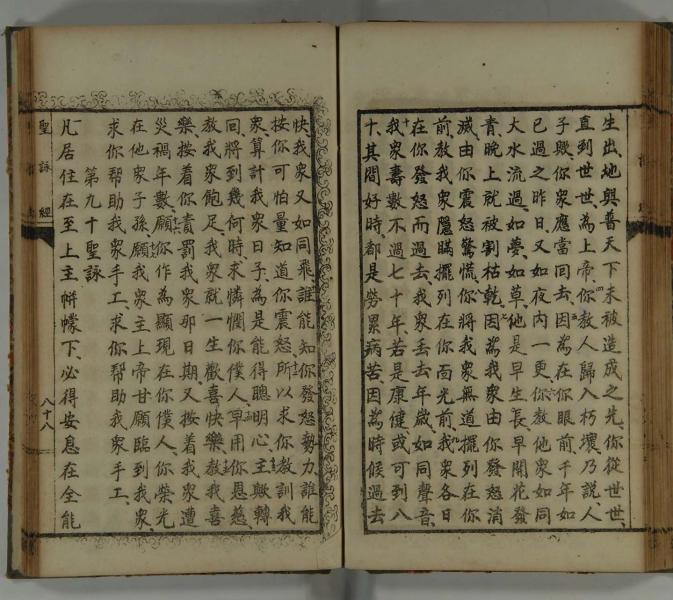 生出、地與普天下未被造成之先、你從世世、
直到世世、為上帝、你教人歸入朽壞、乃說、人
子與你衆應當回去、因為在你眼前千年如
已過之昨日、又如夜內一更、你教他衆如同
大水流過、如夢、如草、他是早生長、早開花發
青、晚上就被割枯乾、因為我衆由你發怒消
滅、由你震怒驚慌、你將我衆無道擺列在你
前、教我衆隱瞞擺列在你面光前、我衆各日
在你發怒而過去、我衆丟去年歲如同聲音、
我衆壽數不過七十年、若是康健、或可到八
十、其間好時、都是勞累病苦、因為時候過去
快、我衆又如同飛、誰能知你發怒勢力、誰能
按你可怕量知道你震怒、所以求你教訓我
衆算計我衆日子、為是能得聰明心、主歟、轉
回、將到幾何時、求憐憫你僕人、早用你恩慈
教我衆飽足、我衆就一生歡喜快樂、教我喜
樂、按着你責罰我衆那日期、又按着我衆遭
災禍年數、願你作為顯現在你僕人、你榮光
在他衆子孫、願我衆主上帝甘願臨到我衆、
求你幫助我衆手工、求你幫助我衆手工、
第九十聖詠
凡居住在至上主帡幪下、必得安息在全能
聖詠經
八十八